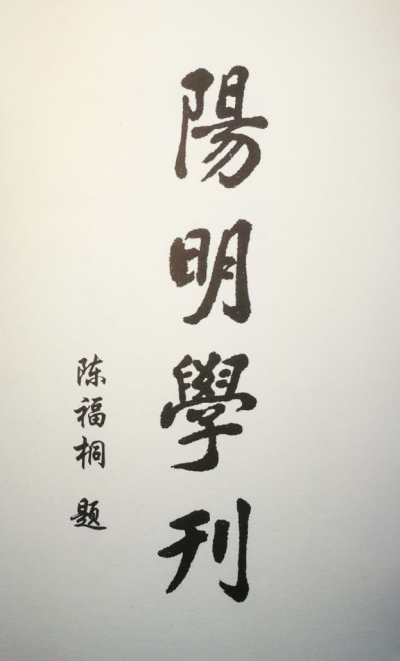 陽明學刊
陈福桐 题